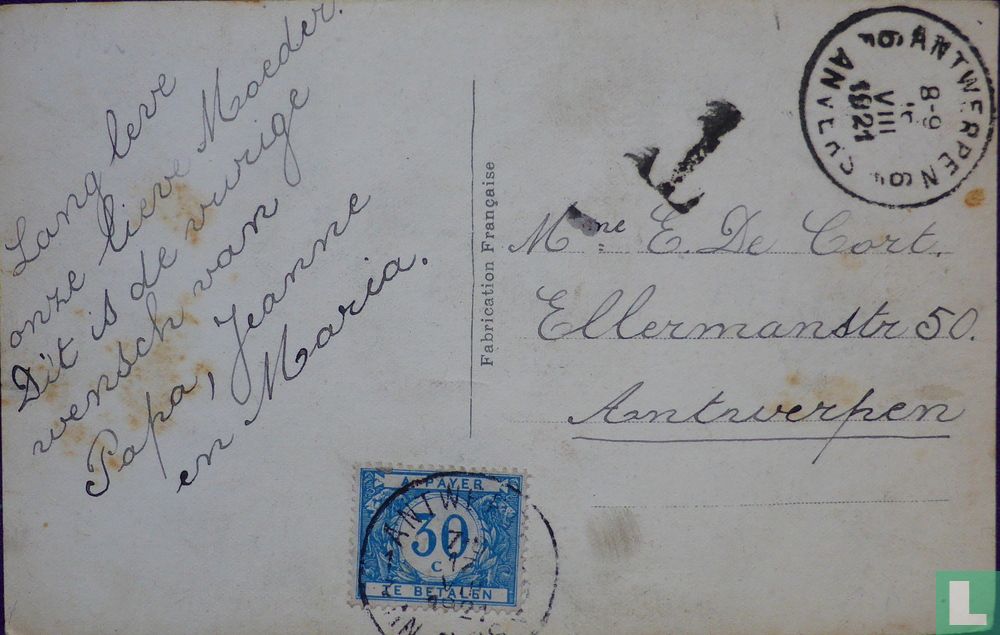 Lang leve
onze lieve Moeder.
Dit is de vurige
wensch van
Papa, Jeanne
en Maria.
Fabrication Française
T
Mme E. De Cort.
Ellermanstr 50.
Antwerpen
ANTWERPEN 6
8-9
VIII
1921
6 ANVERS
A PAYER
30
C
TE BETALEN
ANTWE
1921
L